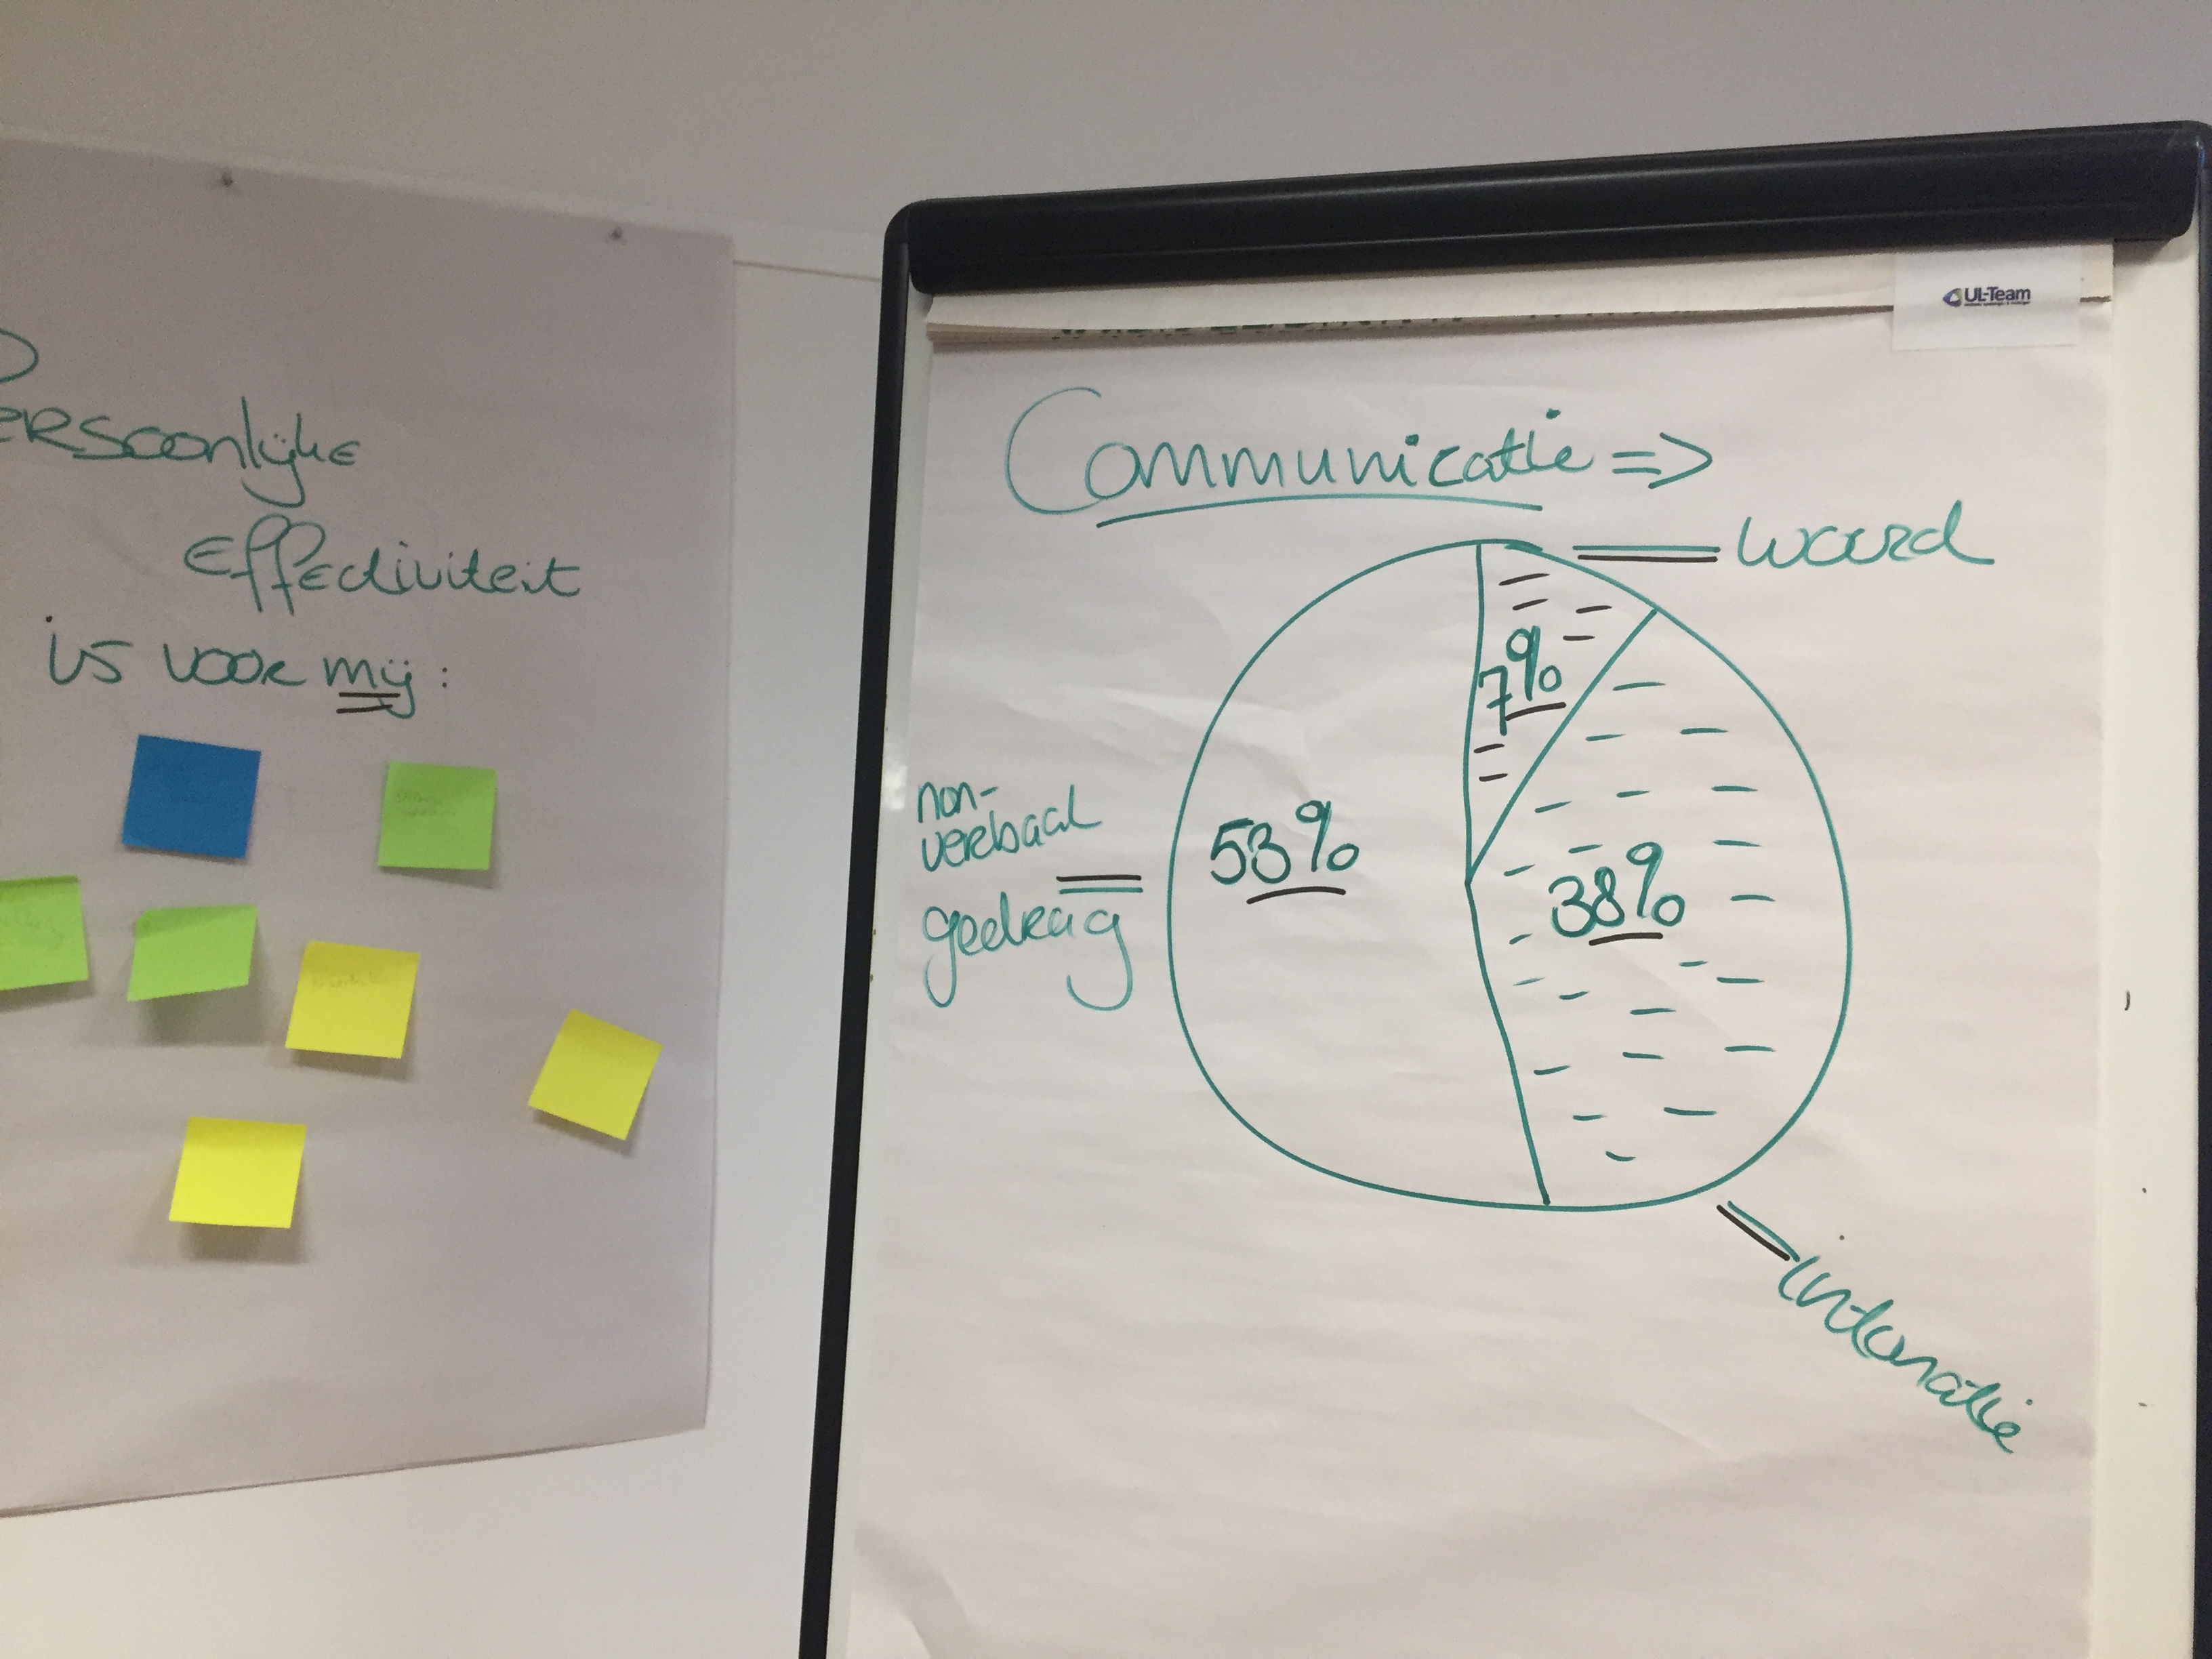 Persoonlijke
Effectiviteit
is voor mij:
UL-Team
Communicatie =>
woord
7%
non-
verbaal
gedrag
53%
38%
intonatie